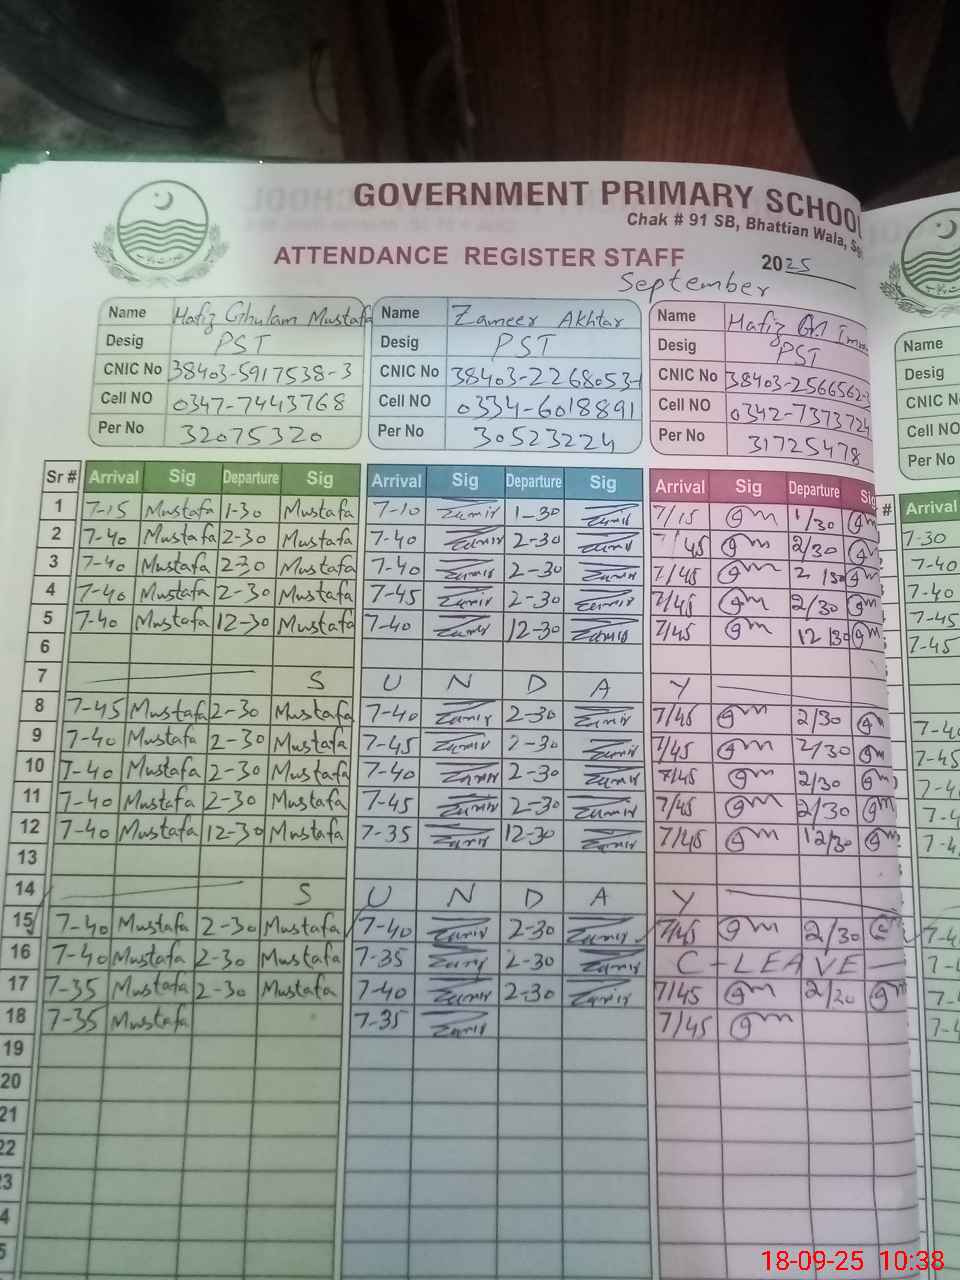 GOVERNMENT PRIMARY SCHOOL
Chak # 91 SB, Bhattian Wala,
ATTENDANCE REGISTER STAFF 2025
September
Name Hafiz Ghulam Mustafa Name Zameer Akhtar Name Hafiz G.M Name
Desig PST Desig PST Desig PST Desig
CNIC No 38403-5917538-3 CNIC No 38403-2268053-1 CNIC No 38403-2566562- CNIC N
Cell NO 0347-7443768 Cell NO 0334-6018891 Cell NO 0342-7373724 Cell NO
Per No 32075320 Per No 30523224 Per No 31725478 Per No
Sr # Arrival Sig Departure Sig Arrival Sig Departure Sig Arrival Sig Departure Sig # Arrival
1 7-15 Mustafa 1-30 Mustafa 7-10 Zamir 1-30 Zamir 7/15 Gm 1/30 Gm 7-30
2 7-40 Mustafa 2-30 Mustafa 7-40 Zamir 2-30 Zamir 7/45 Gm 2/30 Gm 7-40
3 7-40 Mustafa 2-30 Mustafa 7-40 Zamir 2-30 Zamir 7/45 Gm 2/30 Gm 7-40
4 7-40 Mustafa 2-30 Mustafa 7-45 Zamir 2-30 Zamir 7/45 Gm 2/30 Gm 7-45
5 7-40 Mustafa 12-30 Mustafa 7-40 Zamir 12-30 Zamir 7/45 Gm 12/30 Gm 7-45
6
7 S U N D A Y
8 7-45 Mustafa 2-30 Mustafa 7-40 Zamir 2-30 Zamir 7/45 Gm 2/30 Gm
9 7-40 Mustafa 2-30 Mustafa 7-45 Zamir 2-30 Zamir 7/45 Gm 2/30 Gm
10 7-40 Mustafa 2-30 Mustafa 7-40 Zamir 2-30 Zamir 7/45 Gm 2/30 Gm
11 7-40 Mustafa 2-30 Mustafa 7-45 Zamir 2-30 Zamir 7/45 Gm 2/30 Gm
12 7-40 Mustafa 12-30 Mustafa 7-35 Zamir 12-30 Zamir 7/45 Gm 12/30 Gm
13
14 S U N D A Y
15 7-40 Mustafa 2-30 Mustafa 7-40 Zamir 2-30 Zamir 7/45 Gm 2/30
16 7-40 Mustafa 2-30 Mustafa 7-35 Zamir 2-30 Zamir C-LEAVE
17 7-35 Mustafa 2-30 Mustafa 7-40 Zamir 2-30 Zamir 7/45 Gm 2/20 Gm
18 7-35 Mustafa 7-35 Zamir 7/45 Gm
19
20
21
22
23
4
5
18-09-25 10:38